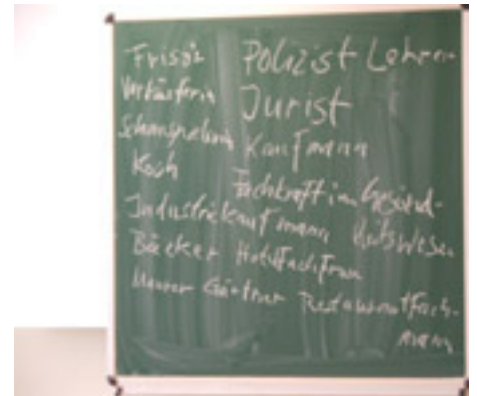 Frisör Polizist Lehrer
Verkäuferin Jurist
Schauspielerin Kaufmann
Koch Fachkraft im Gesund-
Industriekaufmann heitswesen
Bäcker Hotelfachfrau
Maurer Gärtner Restaurantfach-
mann